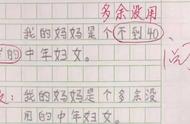 多余没用
我的妈妈是个不到40、
的中年妇女。
：我的妈妈是个多余没
用的中年妇女。